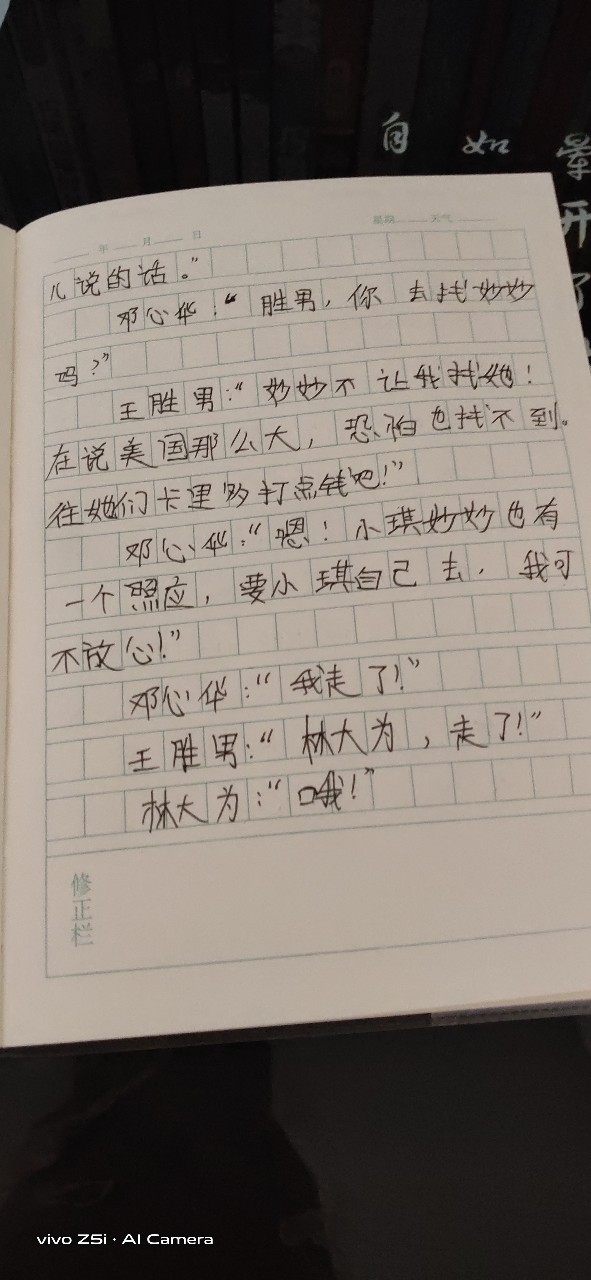 自 如 晕
开
了
年 月 日 星期 天气
儿说的话。”
邓心华：“胜男，你去找妙妙
吗？”
王胜男：“妙妙不让我找她！
在说美国那么大，恐怕也找不到。
往她们卡里多打点钱吧！”
邓心华：“嗯！小琪妙妙也有
一个照应，要小琪自己去，我可
不放心！”
邓心华：“我走了！”
王胜男：“林大为，走了！”
林大为：“哦！”
修正栏
vivo Z5i · AI Camera